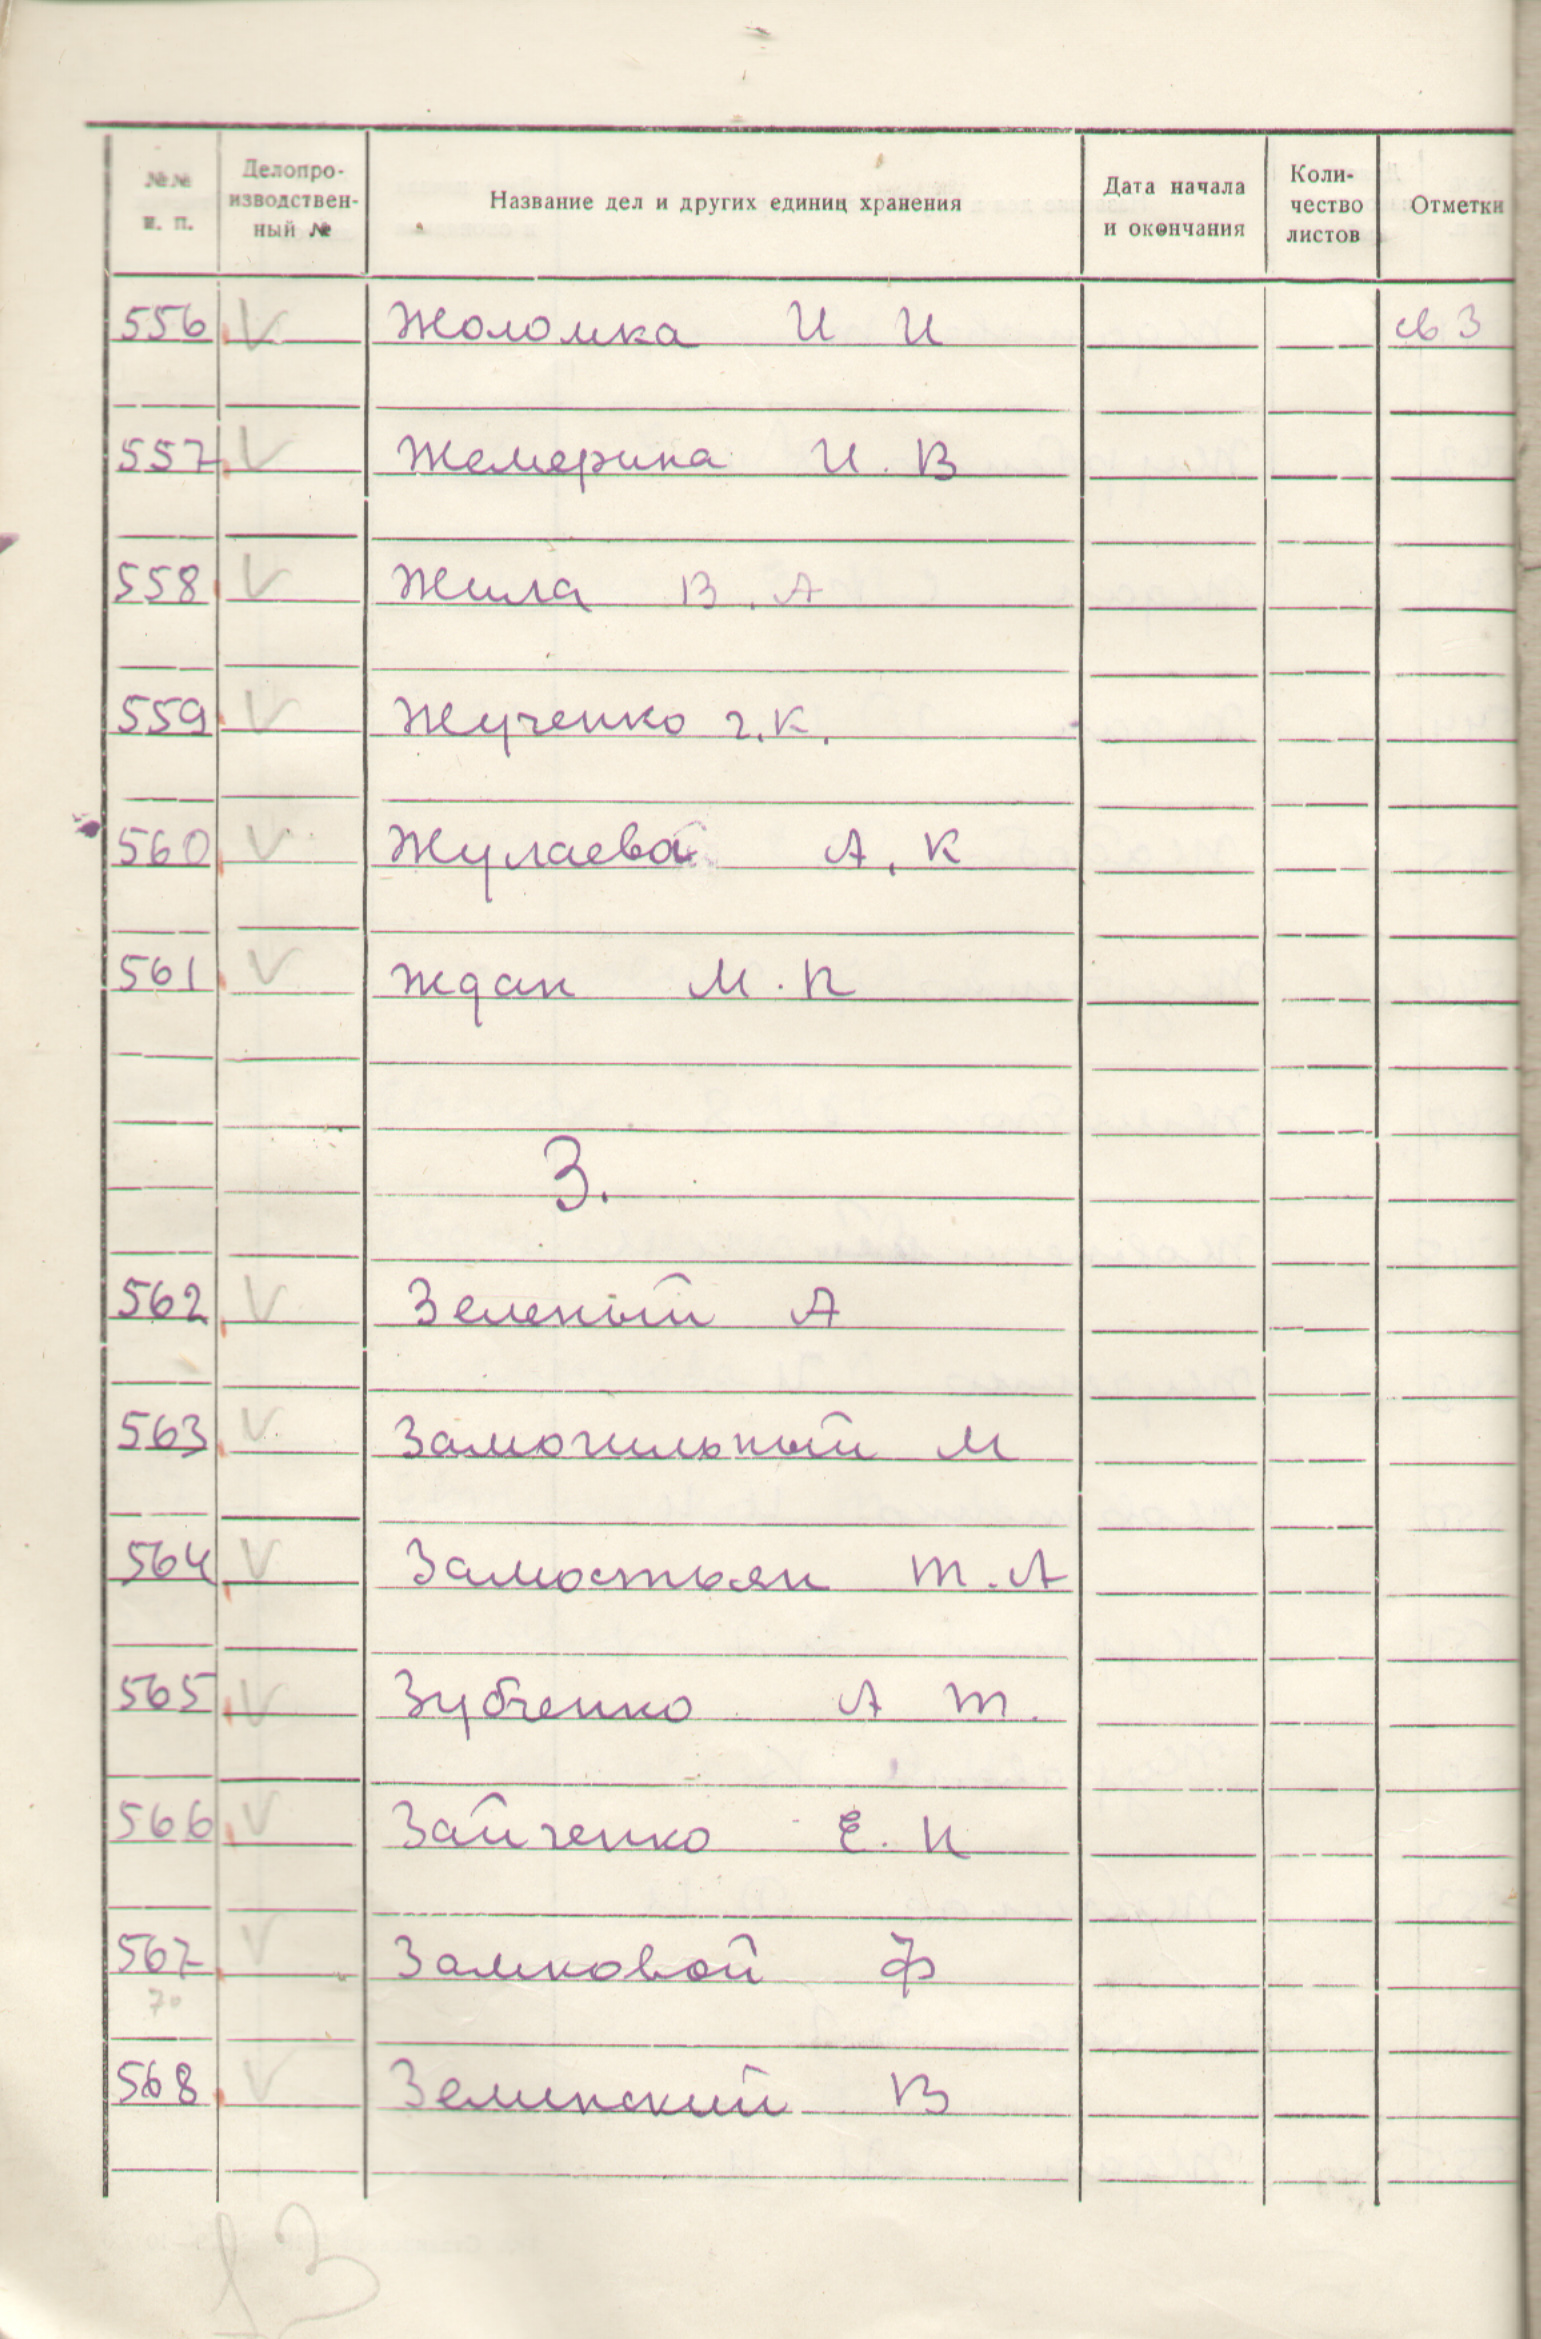 №№ п. п. Делопроизводственный № Название дел и других единиц хранения Дата начала и окончания Количество листов Отметки
556 V Жоломка И И св 3
557 V Жемерина И. В
558 V Жила В. А
559 V Жученко Г. К.
560 V Жулаева А. К
561 V Ждан М. П
З.
562 V Зеленый А
563 V Замогильный М
564 V Замостьян Т. А
565 V Зубченко А Т.
566 V Зайченко Е. И
567 V Замковой Ф
70
568 V Земинский В